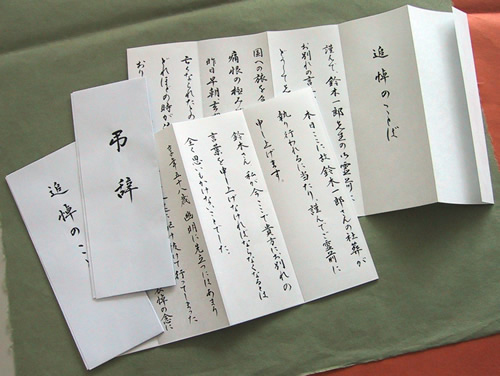 追悼のことば
謹んで鈴木一郎先生の御霊前に
お別れの言
どうしてそ
国への旅を
痛恨の極み
昨日早朝
亡くなられた
どれほどの時が
おり
本日ここに故鈴木一郎さんの社葬が
執り行われるに当たり、謹んでご霊前に
申し上げます。
鈴木さん 私が今ここで貴方にお別れの
言葉を申し上げなければならなくなるとは
全く思いもかけないことでした。
享年五十八歳 幽明に先立つにはあまり
け抜けて行ってしまった
哀悼の念に
弔辞
追悼のこと